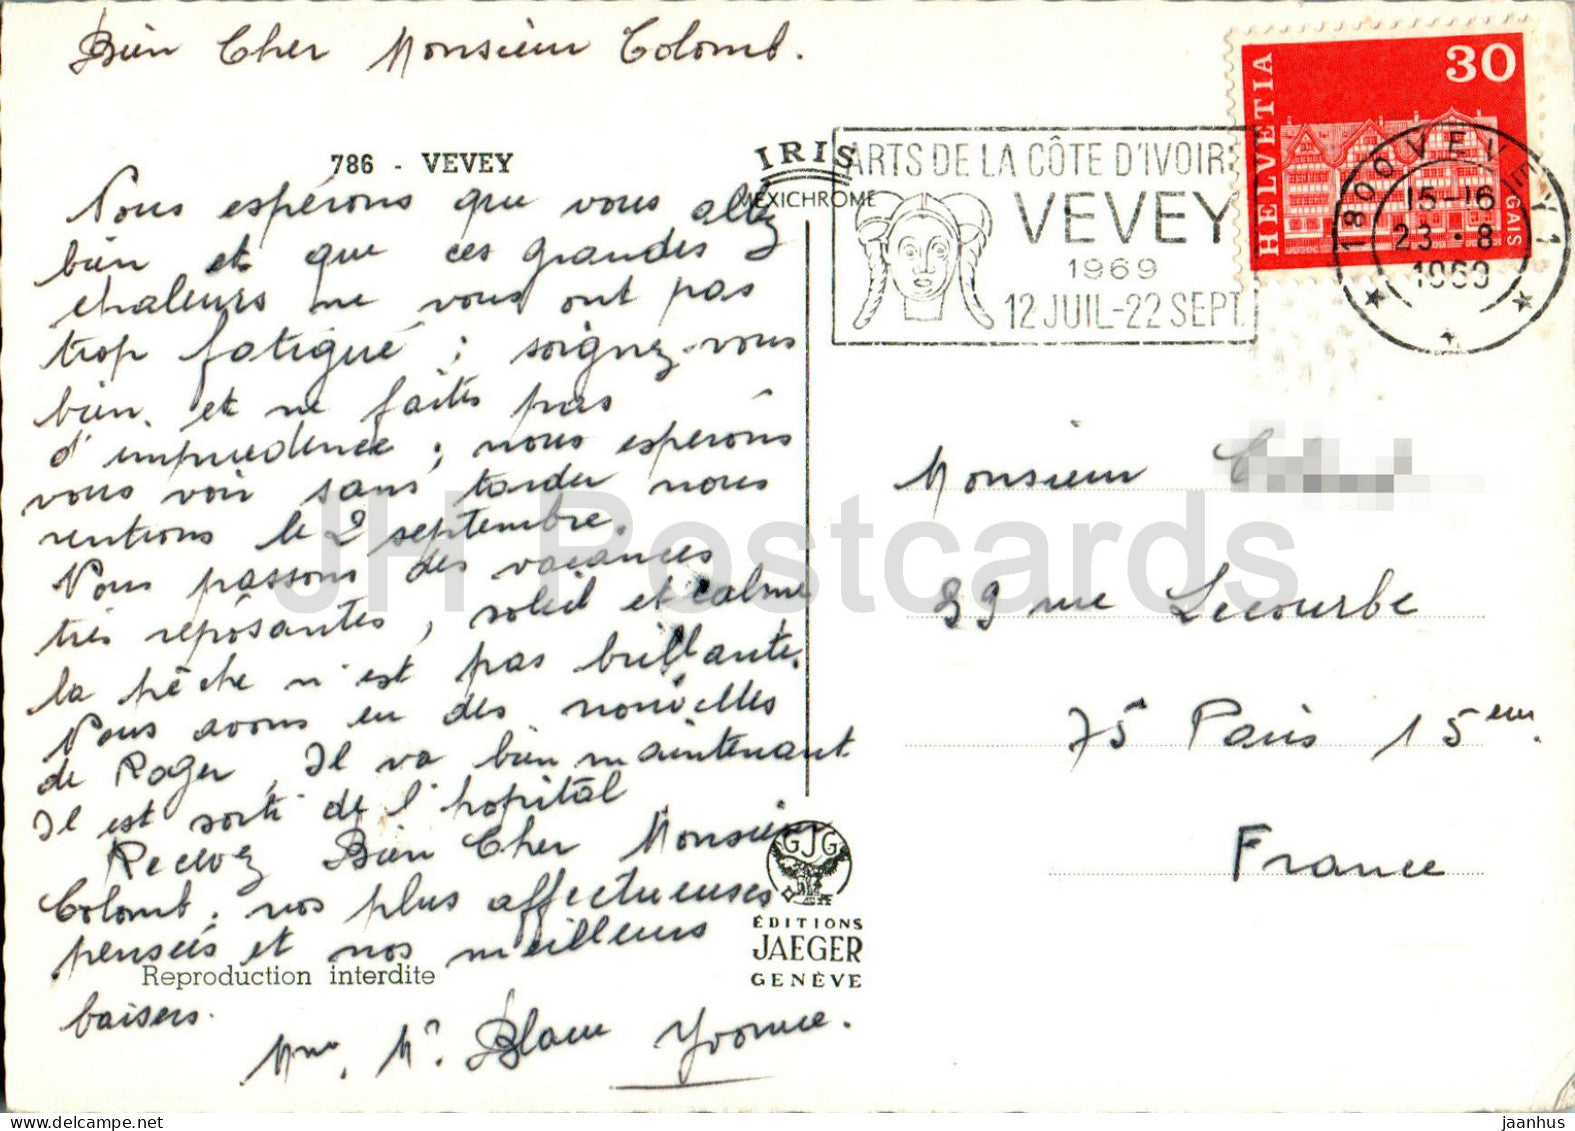 Bien Cher Monsieur Colomb.
786 - VEVEY
Nous espérons que vous allez
bien et que ces grandes
chaleurs ne vous ont pas
trop fatigué ; soignez-vous
bien. et ne faites pas
d'imprudence ; nous espérons
vous voir sans tarder nous
rentrons le 2 septembre.
Nous passons des vacances
très réposantes, soleil et calme
la pêche n'est pas brillante.
Nous avons eu des nouvelles
de Roger, Il va bien maintenant
Il est sorti de l'hopital
Recevez Bien Cher Monsieur
Colomb, nos plus affectueuses
pensées et nos meilleurs
baisers.
Mme. Mr. Blanc Yvonne.
Reproduction interdite
IRIS
MEXICHROME
GJG
ÉDITIONS
JAEGER
GENÈVE
ARTS DE LA CÔTE D'IVOIRE
VEVEY
1969
12 JUIL-22 SEPT.
HELVETIA
30
GAIS
1800 VEVEY 1
15-16
23.-8
1969
Monsieur
99 rue Lecourbe
75 Paris 15em.
France
JH Postcards
jaanhus @ delcampe.net